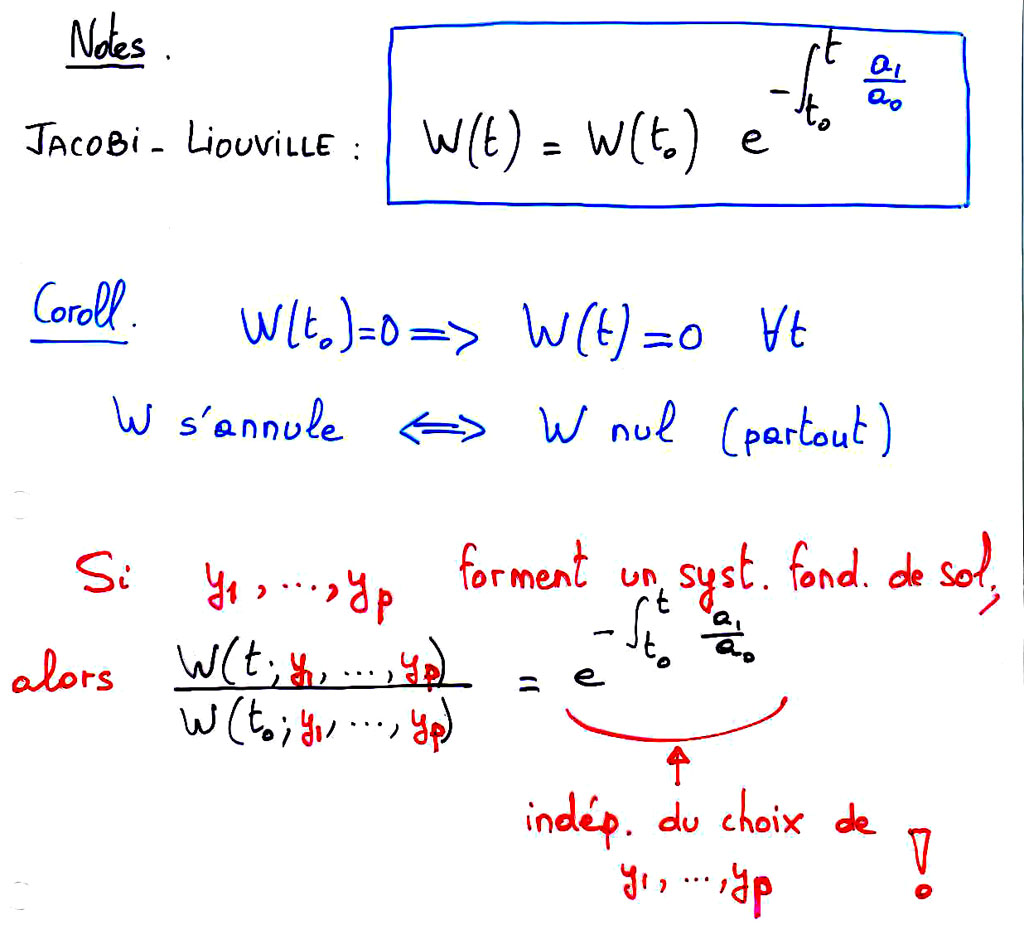 Notes.
JACOBI - LIOUVILLE : W(t) = W(t₀) e^{-∫_{t₀}^{t} a₁/a₀}
Coroll. W(t₀)=0 => W(t)=0 ∀t
W s'annule <=> W nul (partout)
Si y₁, ..., yₚ forment un syst. fond. de sol,
alors W(t; y₁, ..., yₚ) / W(t₀; y₁, ..., yₚ) = e^{-∫_{t₀}^{t} a₁/a₀}
↑
indép. du choix de
y₁, ..., yₚ !